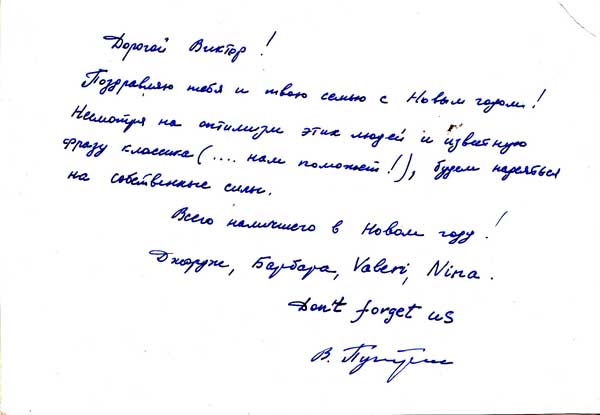 Дорогой Виктор!
Поздравляю тебя и твою семью с Новым годом!
Несмотря на оптимизм этих людей и известную
фразу классика (.... нам поможет!), будем надеяться
на собственные силы.
Всего наилучшего в Новом году!
Джордж, Барбара, Valeri, Nina.
Don't forget us
В.